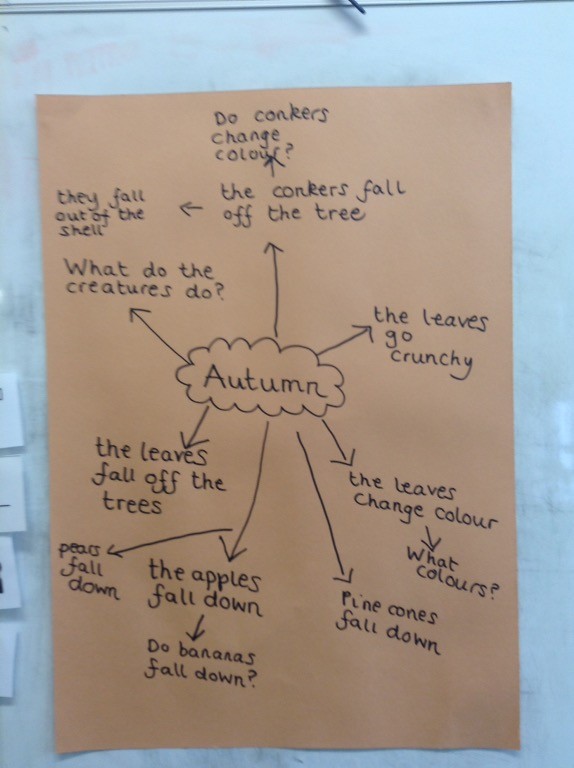 Do conkers
change
colour?
the conkers fall
off the tree
they fall
out of the
shell
What do the
creatures do?
the leaves
go
crunchy
Autumn
the leaves
fall off the
trees
the leaves
change colour
What
colours?
pears
fall
down
the apples
fall down
Do bananas
fall down?
Pine cones
fall down